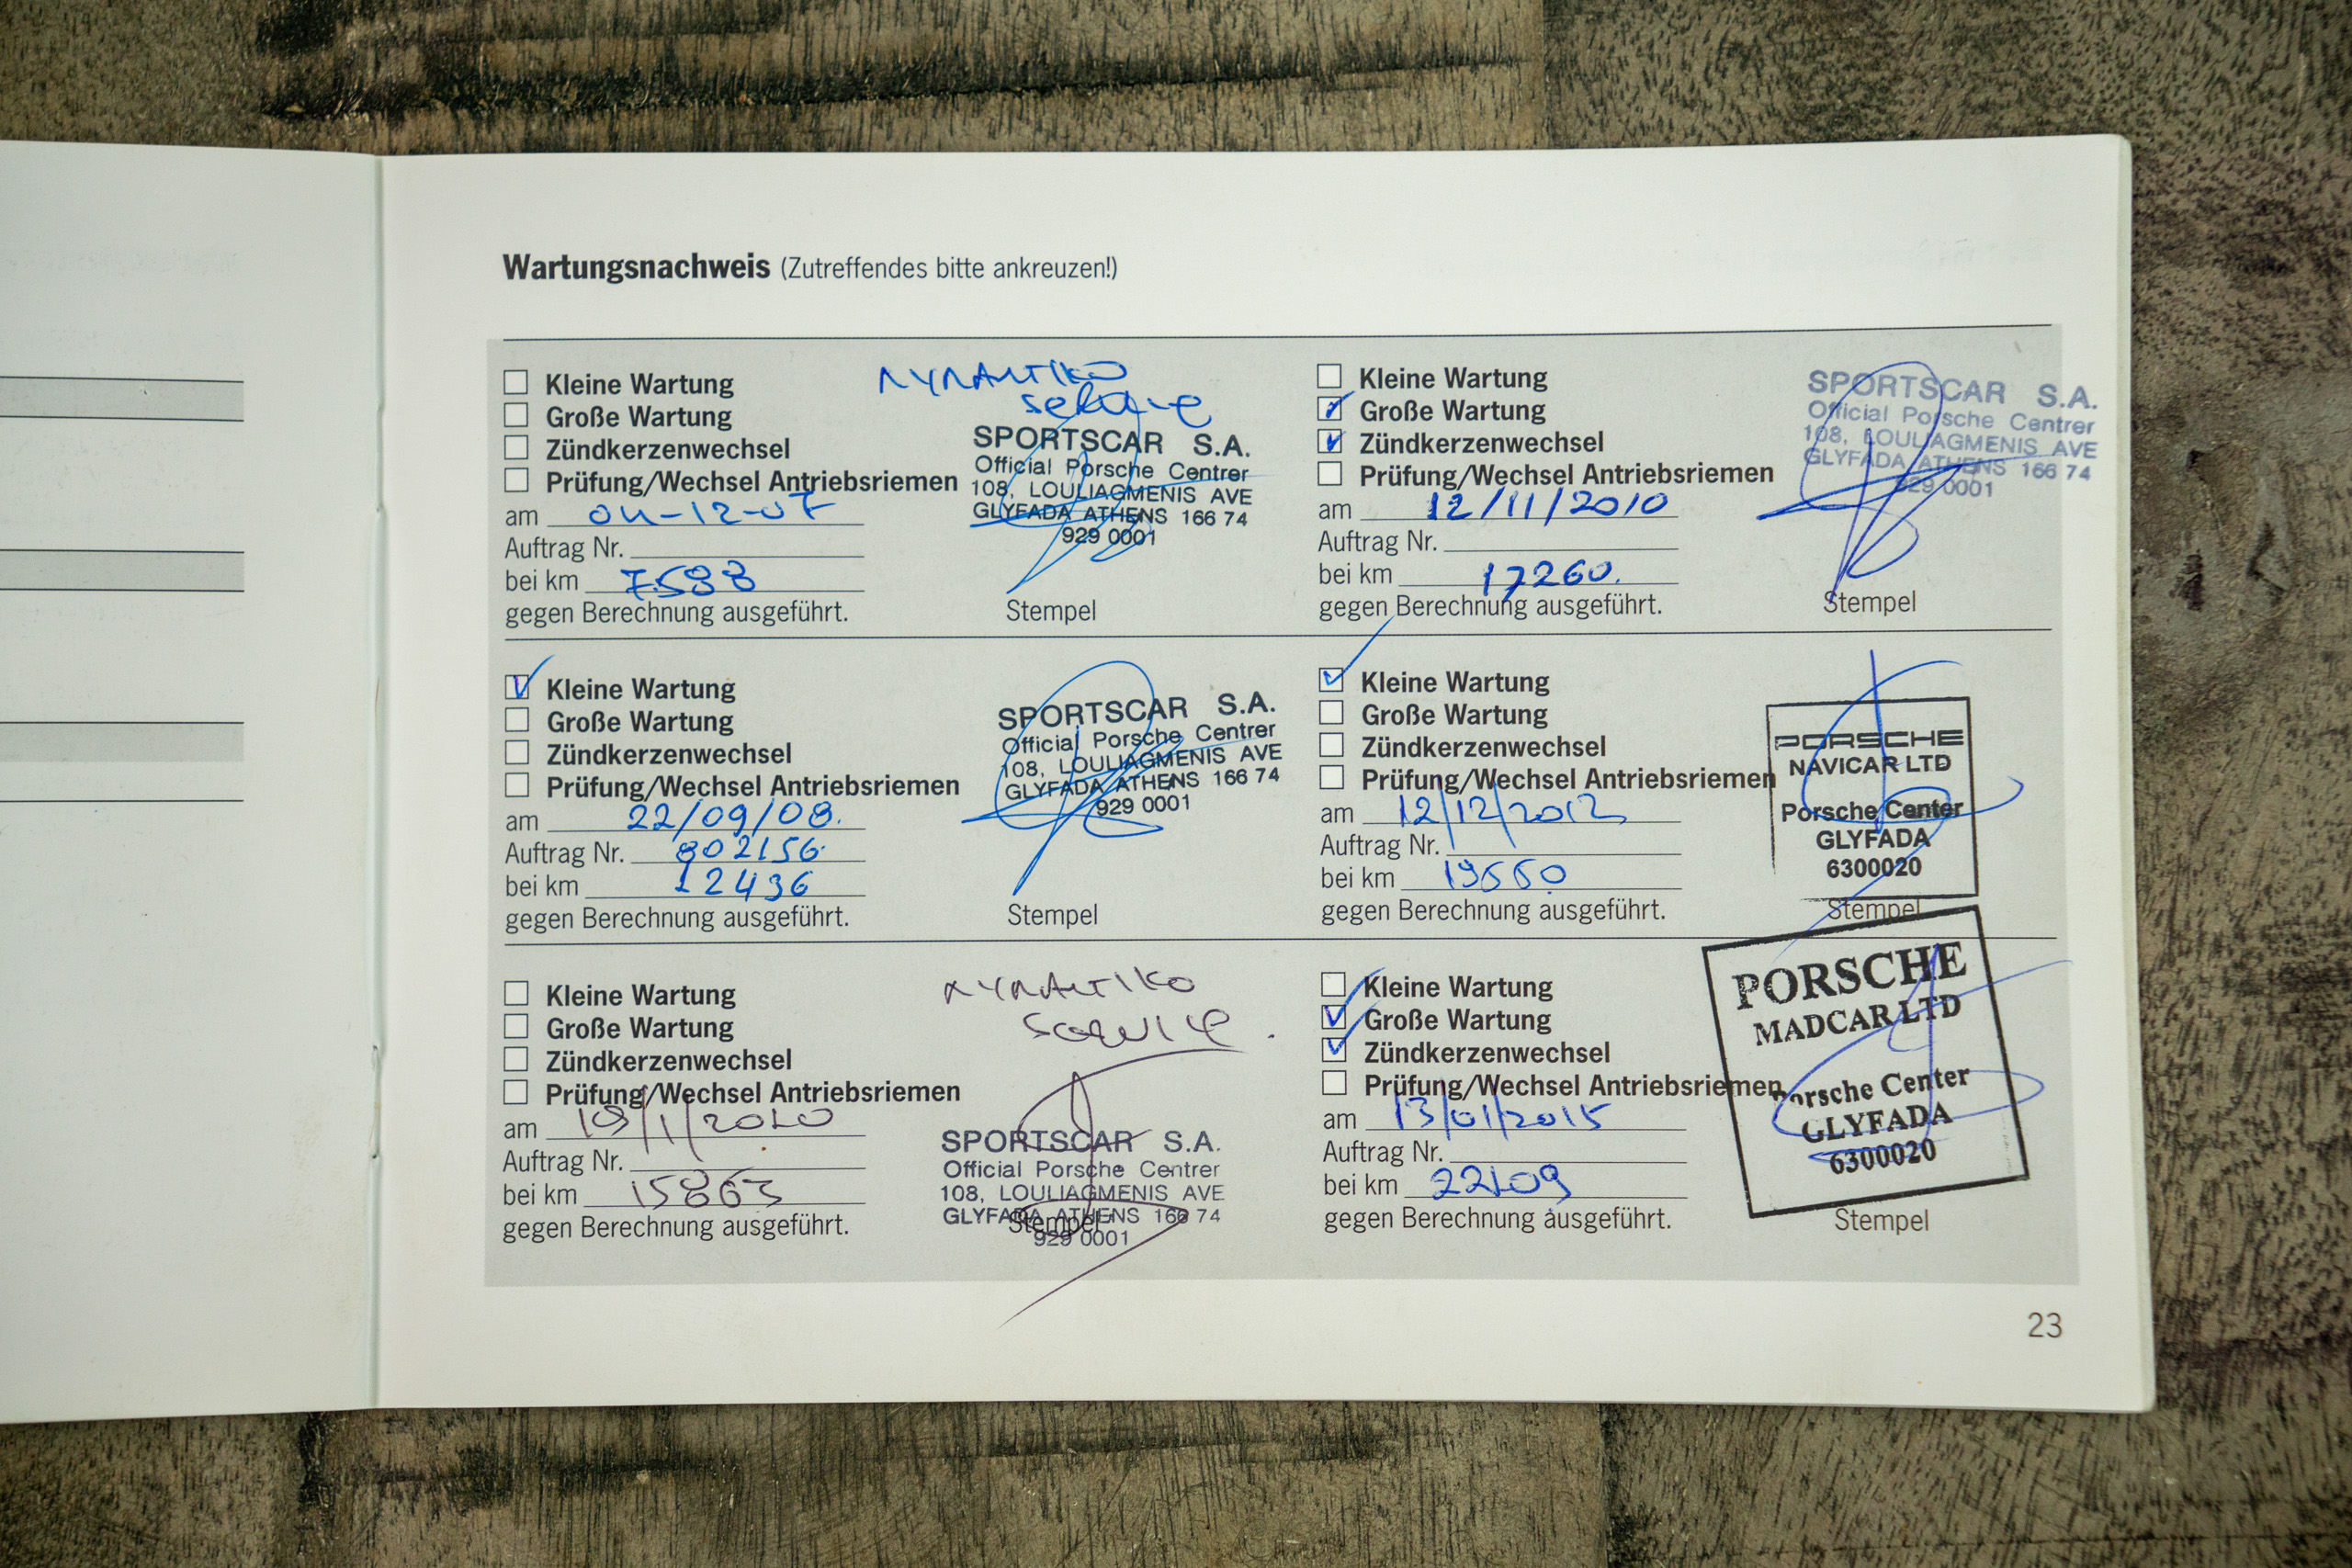 Wartungsnachweis (Zutreffendes bitte ankreuzen!)
Kleine Wartung
Große Wartung
Zündkerzenwechsel
Prüfung/Wechsel Antriebsriemen
am 04-12-07
Auftrag Nr.
bei km 7.588
gegen Berechnung ausgeführt.
SPORTSCAR S.A.
Official Porsche Centrer
108, LOULIAGMENIS AVE
GLYFADA ATHENS 166 74
929 0001
Stempel
Kleine Wartung
Große Wartung
Zündkerzenwechsel
Prüfung/Wechsel Antriebsriemen
am 22/09/08.
Auftrag Nr. 802156
bei km 12436
gegen Berechnung ausgeführt.
SPORTSCAR S.A.
Official Porsche Centrer
108, LOULIAGMENIS AVE
GLYFADA ATHENS 166 74
929 0001
Stempel
Kleine Wartung
Große Wartung
Zündkerzenwechsel
Prüfung/Wechsel Antriebsriemen
am 19/1/2010
Auftrag Nr.
bei km 15863
gegen Berechnung ausgeführt.
SPORTSCAR S.A.
Official Porsche Centrer
108, LOULIAGMENIS AVE
GLYFADA ATHENS 166 74
929 0001
Stempel
Kleine Wartung
Große Wartung
Zündkerzenwechsel
Prüfung/Wechsel Antriebsriemen
am 12/11/2010
Auftrag Nr.
bei km 17260.
gegen Berechnung ausgeführt.
SPORTSCAR S.A.
Official Porsche Centrer
108, LOULIAGMENIS AVE
GLYFADA ATHENS 166 74
929 0001
Stempel
Kleine Wartung
Große Wartung
Zündkerzenwechsel
Prüfung/Wechsel Antriebsriemen
am 12/12/2012
Auftrag Nr.
bei km 19550
gegen Berechnung ausgeführt.
PORSCHE
NAVICAR LTD
Porsche Center
GLYFADA
6300020
Stempel
Kleine Wartung
Große Wartung
Zündkerzenwechsel
Prüfung/Wechsel Antriebsriemen
am 13/01/2015
Auftrag Nr.
bei km 22109
gegen Berechnung ausgeführt.
PORSCHE
MADCAR LTD
Porsche Center
GLYFADA
6300020
Stempel
23